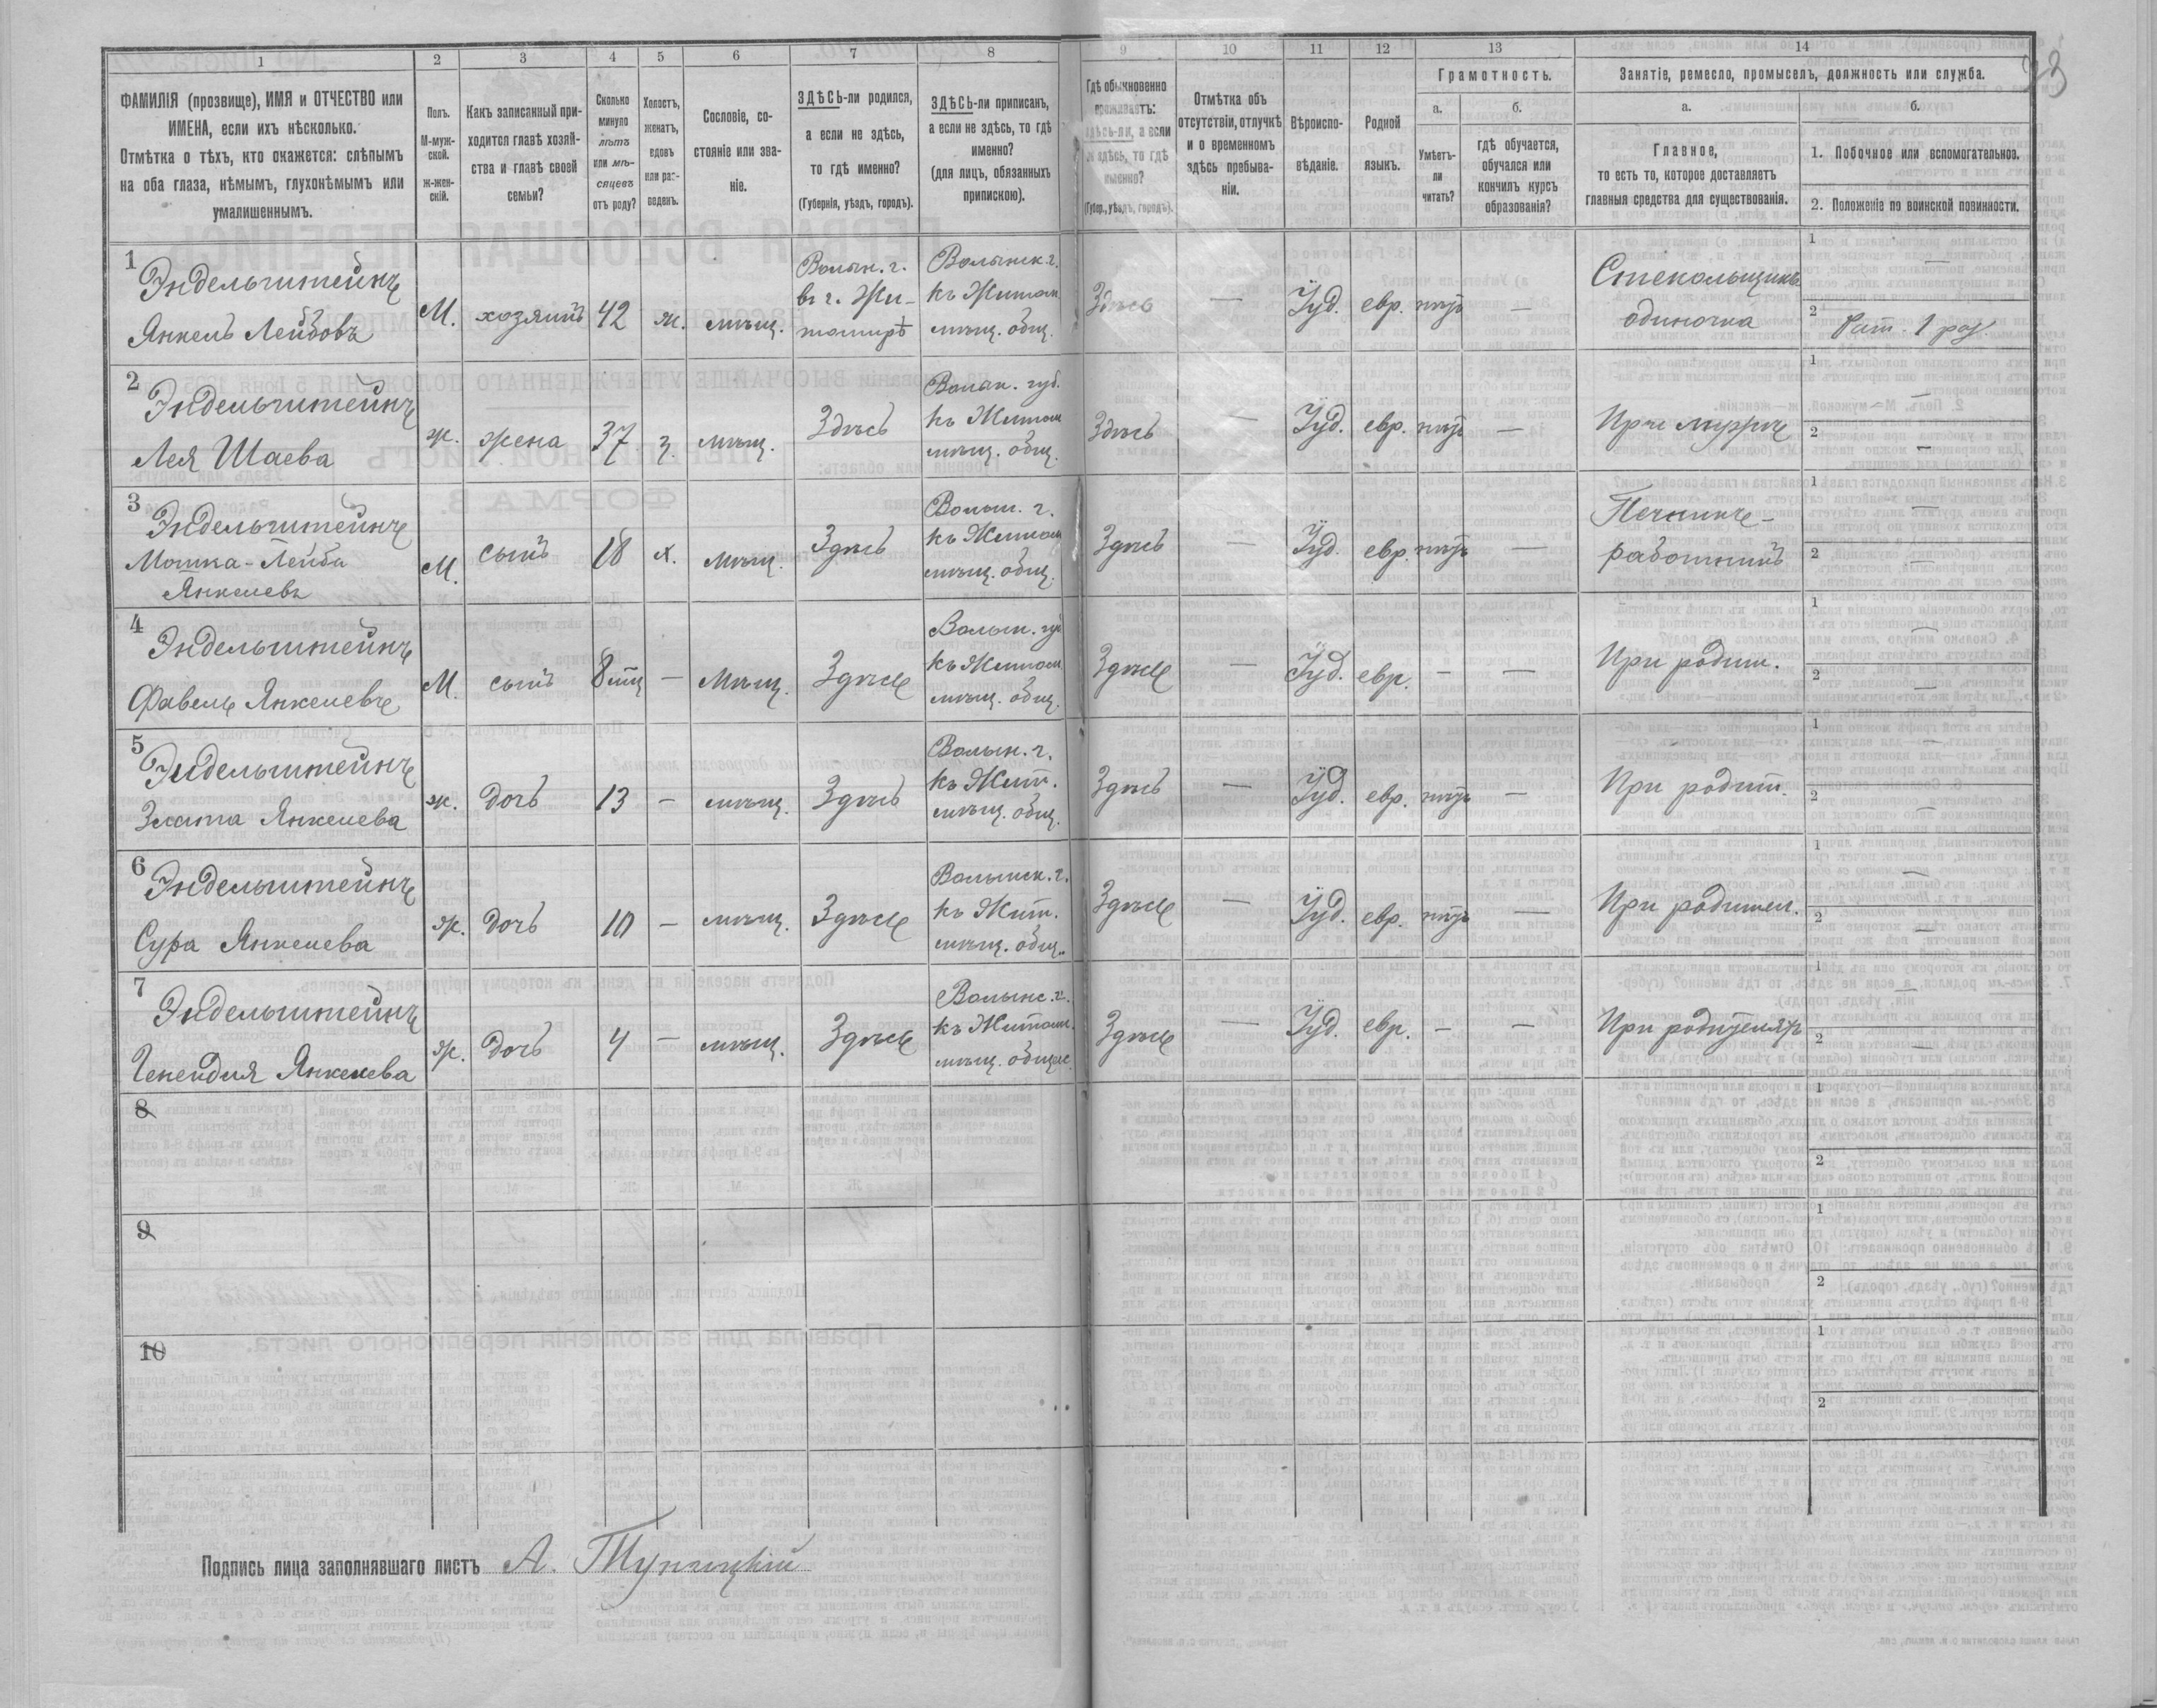 1 2 3 4 5 6 7 8 9 10 11 12 13 14
ФАМИЛІЯ (прозвище), ИМЯ и ОТЧЕСТВО или
ИМЕНА, если ихъ нѣсколько.
Отмѣтка о тѣхъ, кто окажется: слѣпымъ
на оба глаза, нѣмымъ, глухонѣмымъ или
умалишеннымъ.
Полъ.
М-муж-
ской.
ж-жен-
скій.
Какъ записанный при-
ходится главѣ хозяй-
ства и главѣ своей
семьи?
Сколько
минуло
лѣтъ
или мѣ-
сяцевъ
отъ роду?
Холостъ,
женатъ,
вдовъ
или раз-
веденъ.
Сословіе, со-
стояніе или зва-
ніе.
ЗДѢСЬ-ли родился,
а если не здѣсь,
то гдѣ именно?
(Губернія, уѣздъ, городъ).
ЗДѢСЬ-ли приписанъ,
а если не здѣсь, то гдѣ
именно?
(для лицъ, обязанныхъ
припискою).
Гдѣ обыкновенно
проживаетъ:
здѣсь-ли, а если
не здѣсь, то гдѣ
именно?
(Губер., уѣздъ, городъ).
Отмѣтка объ
отсутствіи, отлучкѣ
и о временномъ
здѣсь пребыва-
ніи.
Вѣроиспо-
вѣданіе.
Родной
языкъ.
Грамотность.
а.
Умѣетъ-
ли
читать?
б.
гдѣ обучается,
обучался или
кончилъ курсъ
образованія?
Занятіе, ремесло, промыселъ, должность или служба.
а.
Главное,
то есть то, которое доставляетъ
главныя средства для существованія.
б.
1. Побочное или вспомогательное.
2. Положеніе по воинской повинности.
1
Эндельштейнъ
Янкель Лейбовъ
М. хозяинъ 42 ж. мѣщ.
Волын. г.
въ г. Жи-
томирѣ
Волынск. г.
къ Житом.
мѣщ. общ.
Здѣсь — Іуд. евр. нѣтъ —
Стекольщикъ
одиночка
1 —
2 Рат. 1 раз.
2
Эндельштейнъ
Лея Шаева
ж. жена 37 з. мѣщ. Здѣсь
Волын. губ.
къ Житом
мѣщ. общ.
Здѣсь — Іуд. евр. нѣтъ —
При мужѣ
1 —
2 —
3
Эндельштейнъ
Мошка-Лейба
Янкелевъ
М. сынъ 18 х. мѣщ. Здѣсь
Волын. г.
къ Житом
мѣщ. общ.
Здѣсь — Іуд. евр. нѣтъ —
Печникъ-
работникъ
1 —
2 —
4
Эндельштейнъ
Фавель Янкелевъ
М. сынъ 8 — мѣщ. Здѣсь
Волын. гу
къ Житом
мѣщ. общ.
Здѣсь — Іуд. евр. — —
При родит.
1 —
2 —
5
Эндельштейнъ
Злата Янкелева
ж. дочь 13 — мѣщ. Здѣсь
Волын. г.
къ Жит.
мѣщ. общ.
Здѣсь — Іуд. евр. нѣтъ —
При родит.
1 —
2 —
6
Эндельштейнъ
Сура Янкелева
ж. дочь 10 — мѣщ. Здѣсь
Волынск. г.
къ Жит.
мѣщ. общ.
Здѣсь — Іуд. евр. нѣтъ —
При родител.
1 —
2 —
7
Эндельштейнъ
Янкелева
ж. дочь 4 — мѣщ. Здѣсь
Волынс. г.
къ Житом.
мѣщ. общес.
Здѣсь — Іуд. евр. — —
При родителяхъ
1 —
2 —
8
1
2
9
1
2
10
1
2
Подпись лица заполнявшаго листъ А.